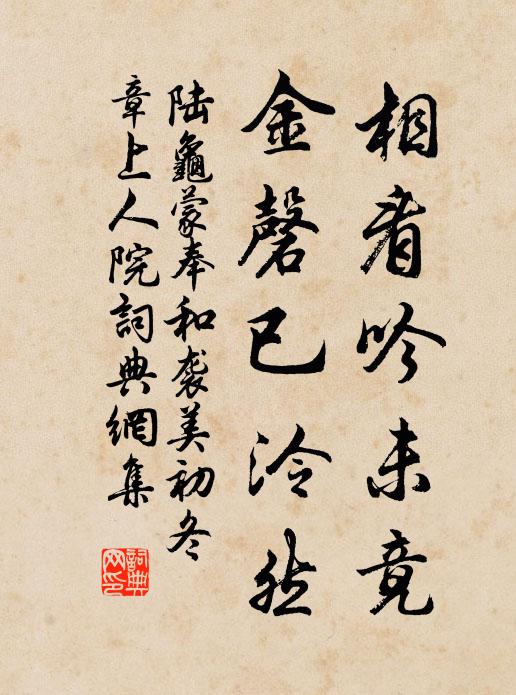 相看吟未竟
金磬已泠然
陆龜蒙奉和袭美初冬
章上人院詞典網集
詞典
网印